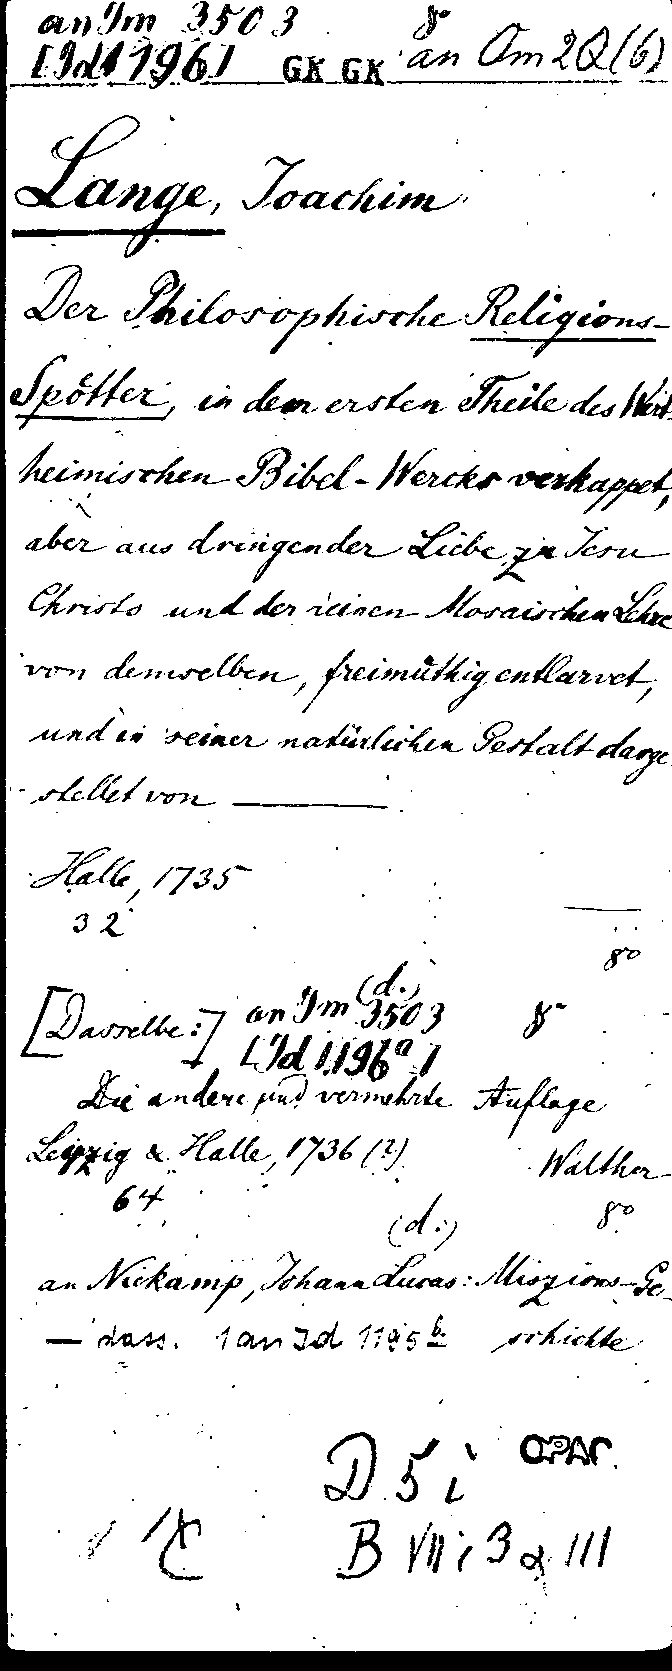 an Im 3503 8°
[Id 1196] GK GK an Om 2Q (6)
Lange, Joachim
Der Philosophische Religions-
Spötter, in dem ersten Theile des Wert-
heimischen Bibel-Wercks verkappet,
aber aus dringender Liebe zu Jesu
Christo und der reinen Mosaischen Lehre
von demselben, freimüthig entlarvet,
und in seiner natürlichen Gestalt darge
stellet von ———
Halle, 1735
32
8°
(d.)
[Dasselbe:] an Im 3503 8°
[Id 1196a]
Die andere und vermehrte Auflage
Leipzig & Halle, 1736 (2) Walther
64 8°
(d.)
an Niekamp, Johann Lucas: Miszions-Ge-
— dass. 1 an Id 1195 b. schichte
OPAC
D 5 i
B VII i 3 α III